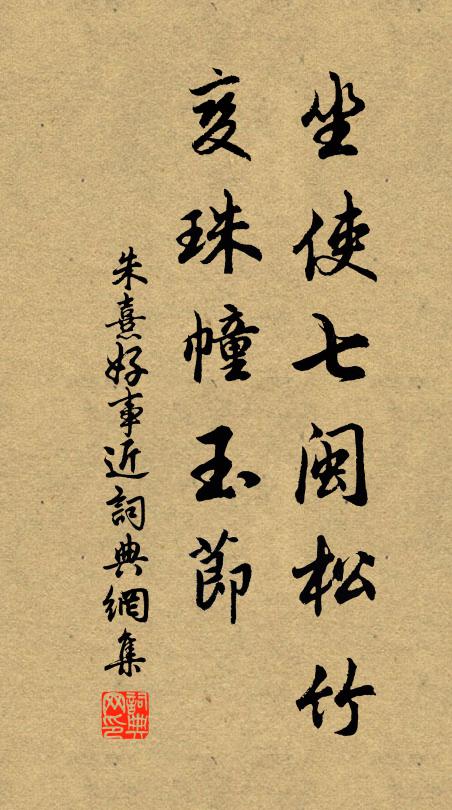 坐使七闽松竹
变珠幢玉節
朱熹好事近詞典網集
詞典网印